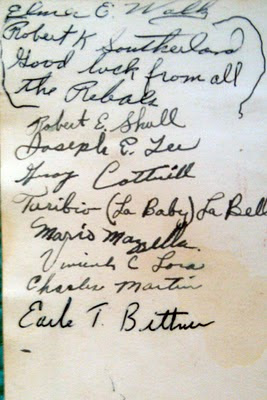 Elmer E. Walk
Robert K Southerland
Good luck from all
the Rebals
Robert E. Shull
Joseph E. Lee
Cottrill
Turibio (La Baby) La Bella
Mario Mazzella
C Lora
Charles Martin
Earle T. Bittner